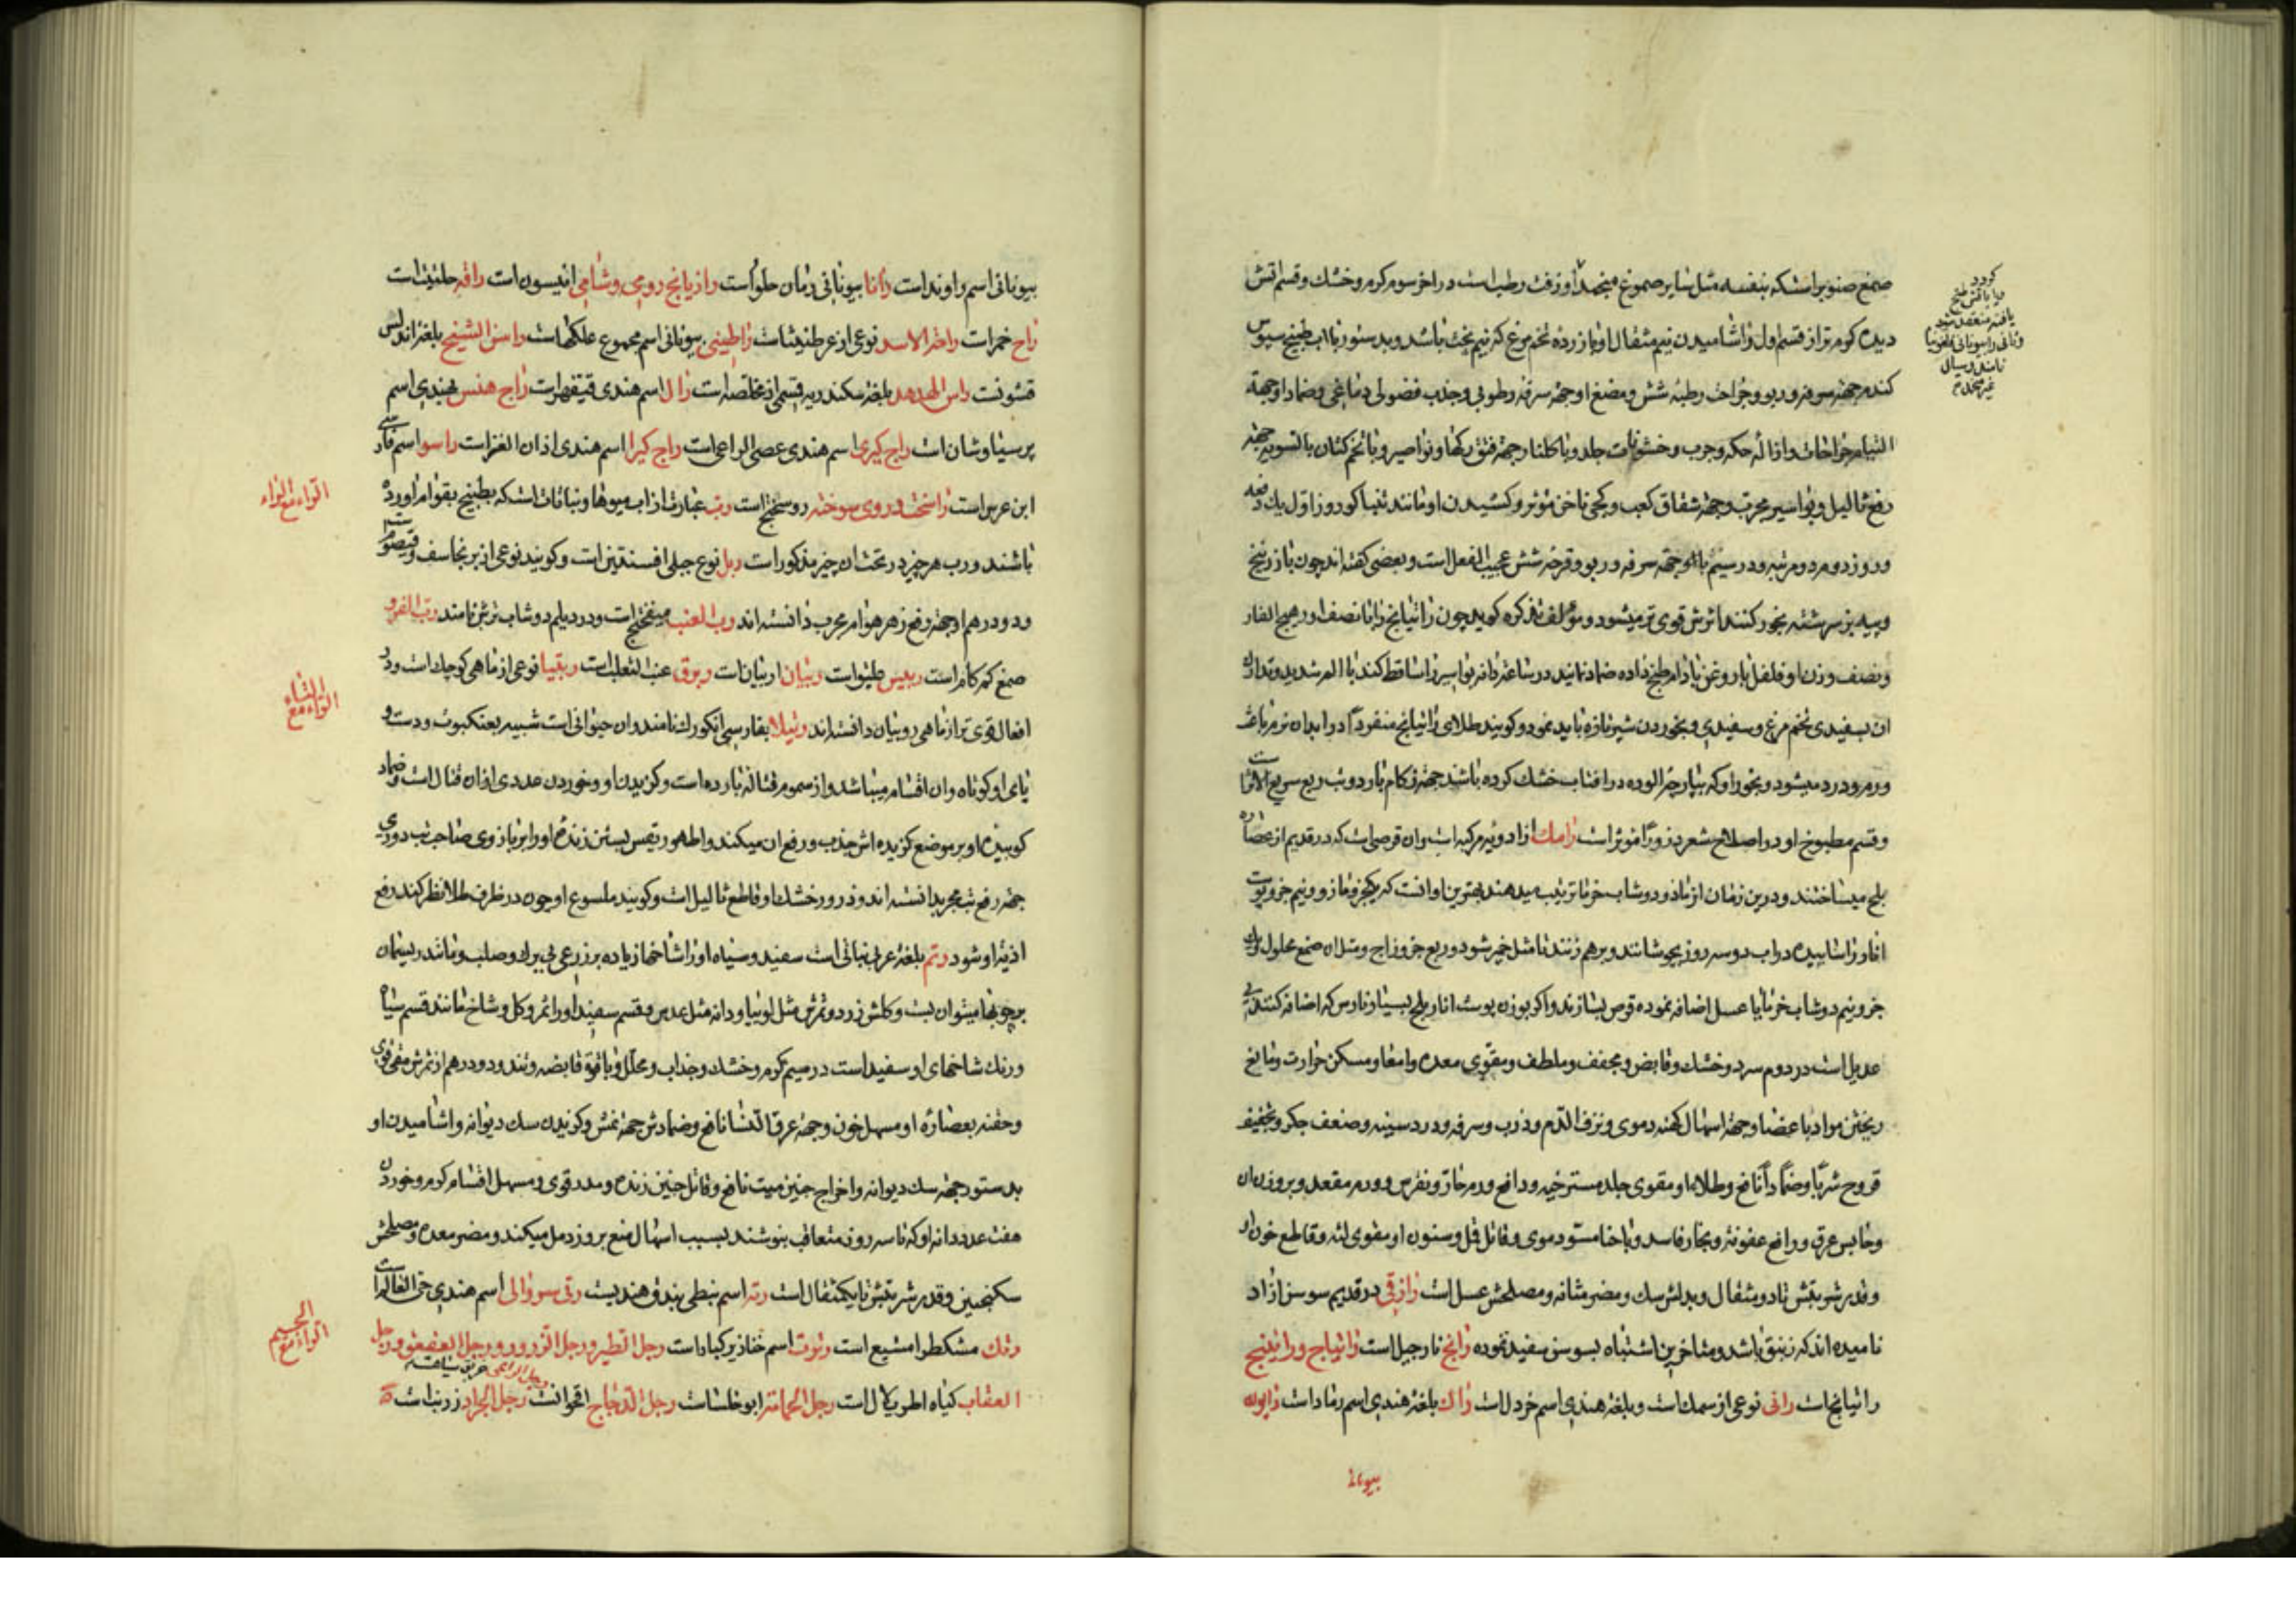 صمغ صنوبر است که بنفسه مثل سایر صموغ منجمد او زفت رطب است در آخر سوم گرم و خشک و قسم آتش
دیده گرم تر از قسم اول و آشامیدن نیم مثقال او با زرده تخم مرغ که نیم پخت باشد و بدستور با آب طبیخ سبوس
گندم جهة سرفه و ربو و جراحت رطبه شش و مضغ او جهة سرفه رطوبی و جذب فضول دماغی و ضماد او جهة
التیام جراحات و ازاله حکه و جرب و خشونات جلد و با گلنار جهة فتق رگها و نواصیر و با تخم کتان بالسویه جهة
رفع ثالیل و بواسیر مجرب و جهة شقاق کعب و کجی ناخن مؤثر و کشیدن او مانند تنباکو روز اول یک دفعه
و روز دوم دو مرتبه و در سیم با او جهة سرفه و ربو و قرحه شش عجیب الفعل است و بعضی گفته اند چون با زرنیخ
و پیه بز سرشته بخور کنند اثرش قوی تر میشود و مؤلف تذکره گوید چون راتیانج را با نصف او رهج الفار
و نصف وزن او فلفل با روغن بادام طبخ داده ضماد نمایند در ساعة دانه بواسیر را ساقط کند با الم شدید و تدارک
آن بسفیدی تخم مرغ و سفیدی و بخوردن شیر تازه باید نمود و گویند طلای راتیانج منفردا در ابدان نرم باعث
ورم و درد میشود و بخور او که بپارچه آلوده در آفتاب خشک کرده باشند جهة زکام بارد و تب ربع سریع الاثر است
و قسم مطبوخ او در اصلاح شعر ذرورا مؤثر است رامک از ادویه مرکبه است و آن قرصی است که در قدیم از عصاره
بلح میساختند و درین زمان از مازو و دوشاب خرما ترتیب میدهند بهترین او آنست که یکجزو مازو و نیم جزو پوست
انار را سائیده در آب دو سه روز بجوشانند و برهم زنند تا مثل خمیر شود و ربع جزو زاج و مثل آن صمغ محلول و یک
جزو نیم دوشاب خرما یا عسل اضافه نموده قرص سازند و اگر بوزن پوست انار بلح بسیار نارس که اضافه کنند بی
عدیل است در دوم سرد و خشک و قابض و مجفف و ملطف و مقوی معده و امعا و مسکن حرارت و مانع
ریختن مواد باعضا و جهة اسهال کهنه دموی و نزف الدم و ذرب و سرفه و درد سینه و ضعف جگر و تجفیف
قروح شربا و ضمادا نافع و طلاء او مقوی جلد مسترخیه و دافع ورم حار و نقرس و ورم مقعد و بروز آن
و حابس عرق و رافع عفونة و بخار فاسد و با حنا مسود موی و قاتل قمل و سنون او مقوی لثه و قاطع خون او
و قدر شربتش تا دو مثقال و بدلش سک و مضر مثانه و مصلحش عسل است رازقی در قدیم سوسن آزاد
نامیده اند که زنبق باشد و متاخرین اشتباه بسوسن سفید نموده رانج نارجیل است راتیاج و راتینج
راتیانج است رانی نوعی از سمک است و بلغة هندی اسم خردل است راک بلغة هندی اسم رماد است راپون
بیونا
گردد
و یا بآتش طبخ
یافته منعقد شود
و ثانی را بیونانی قلفونیا
نامند و سیال
غیر منجمد هم
بیونانی اسم راوند است رانا بیونانی رمان حلو است رازیانج رومی و شامی انیسون است رافه حلتیت است
راح خمر است راحة الاسد نوعی از عرطنیثا است راطینی بیونانی اسم مجموع علکها است راس الشیخ بلغة اندلس
راس الهدهد بلغة سکندریه قسمی از مخلصه است رال اسم هندی قیقهر است راج هنس بهندی اسم
پرسیاوشان است راج کیری اسم هندی عصی الراعی است راج کیرا اسم هندی آذان العنز است راسو اسم فارسی
ابن عرس است راسخت و روی سوخته روسختج است رب عبارت از آب میوها و نباتات است که بطبخ بقوام آورده
باشند و رب هر چیز در تحت آن چیز مذکور است ربل نوع جبلی افسنتین است و گویند نوعی از برنجاسف و قیصوم است
و دو درهم او جهة رفع زهر هوام مجرب دانسته اند رب العنب میفختج است و در دیلم دوشاب ترش نامند رب القرو
صمغ کمرکام است ربیس طیثو است ربیان اربیان است ربرق عنب الثعلب است ربقیا نوعی از ماهی کوچک است و در
افعال قوی تر از ماهی روبیان دانسته اند رتیلا بفارسی انکورک نامند و آن حیوانی است شبیه بعنکبوت و دست و
پای او کوتاه و آن اقسام میباشد و از سموم قتاله بارده است و گزیدن او و خوردن عددی از آن قتال است و ضماد
کوبیده او بر موضع گزیده اش جذب و رفع آن میکند و اطهورسقیس بستن زنده او را بر بازوی صاحب تب دوری
جهة رفع تب مجرب دانسته اند و ذرور خشک او قاطع ثالیل است و گویند ملسوع او چون در ظرف طلا نظر کند رفع
اذیة او شود رتم بلغة عربی نباتی است سفید و سیاه او را شاخها زیاده بر ذرعی بی برک و صلب و مانند ریسمان
برچوبها میتوان بست و گلش زرد و ثمرش مثل لوبیا و دانه مثل عدس و قسم سفید او را ثمر و گل و شاخ مانند قسم سیاه
و رنک شاخهای او سفید است در سیم گرم و خشک و جذاب و محلل و با قوة قابضه و تند و دو درهم از ثمرش مقی قوی
و حقنه بعصاره او مسهل خون و جهة عرق النسا نافع و ضمادش جهة نمش و گزیدن سک دیوانه و آشامیدن او
بدستور جهة سک دیوانه و اخراج جنین میت نافع و قاتل جنین زنده و مدر قوی و مسهل اقسام کرم و خوردن
هفت عدد دانه او که تا سه روز متعاقب بنوشند بسبب اسهال منع بروز دمل میکند و مضر معده و مصلحش
سکنجبین و قدر شربتش تا یکمثقال است رته اسم نبطی بندق هندیست رتی سورالی اسم هندی خرء الفار است
رتک مشکطرامشیع است رتوت اسم خنازیر کبار است رجل الطیر و رجل الزرزور و رجل العقعق و رجل
رجل الراعی
العقاب گیاه اطریلال است رجل الحمامة ابوخلسا است رجل الدجاج اقحوانست رجل الجراد زرنب است
الراء مع الراء
الراء مع التاء
الراء مع الجیم